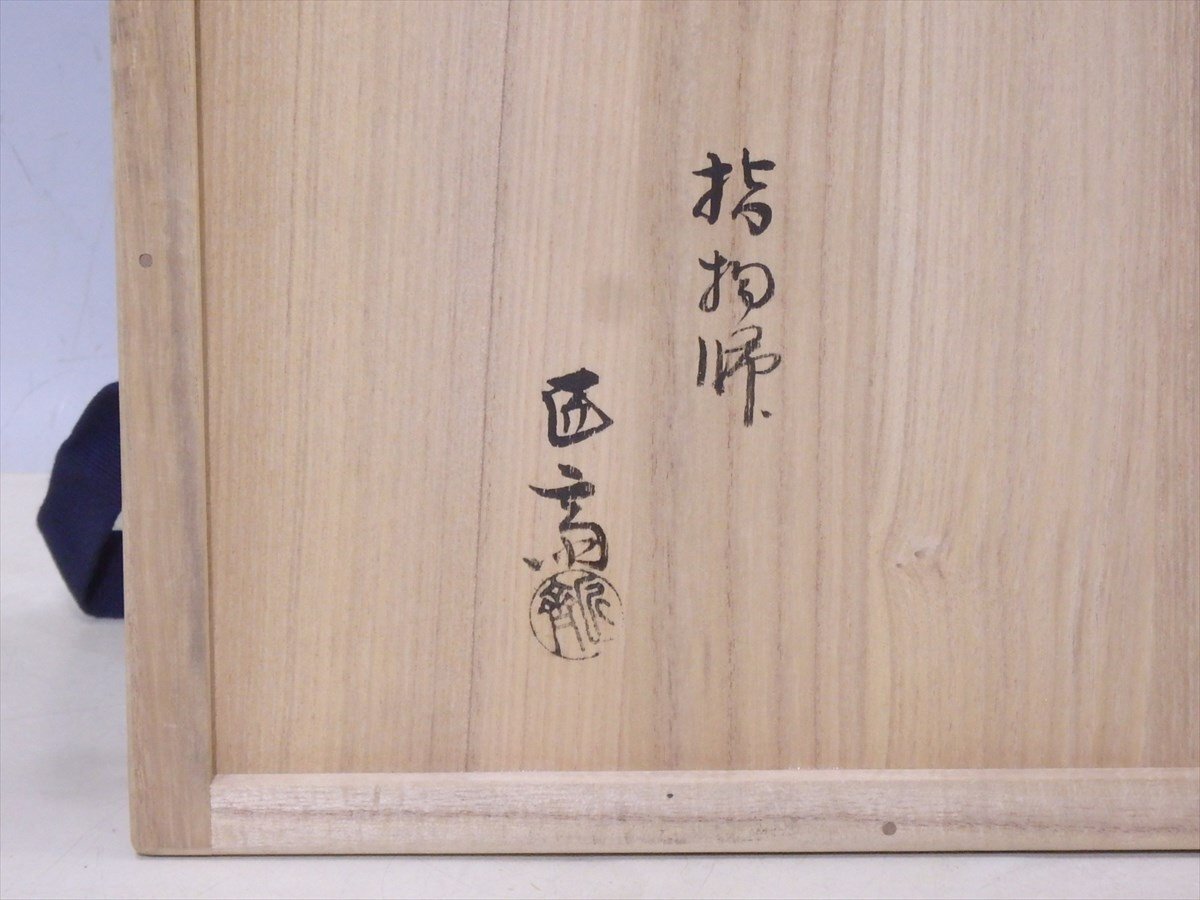 指物師
匠斎